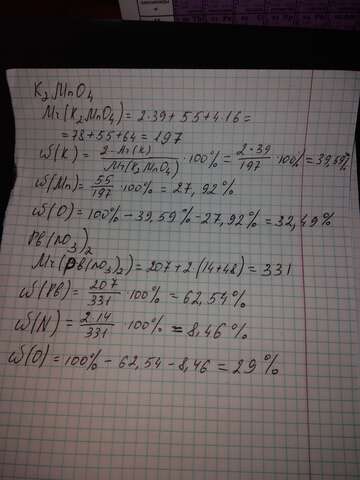 K₂MnO₄
Mr(K₂MnO₄) = 2·39 + 55 + 4·16 =
= 78 + 55 + 64 = 197
ω(K) = 2·Ar(K) / Mr(K₂MnO₄) · 100% = 2·39 / 197 · 100% = 39,59%
ω(Mn) = 55 / 197 · 100% = 27,92%
ω(O) = 100% − 39,59% − 27,92% = 32,49%
Pb(NO₃)₂
Mr(Pb(NO₃)₂) = 207 + 2·(14+48) = 331
ω(Pb) = 207 / 331 · 100% = 62,54%
ω(N) = 2·14 / 331 · 100% = 8,46%
ω(O) = 100% − 62,54 − 8,46 = 29%